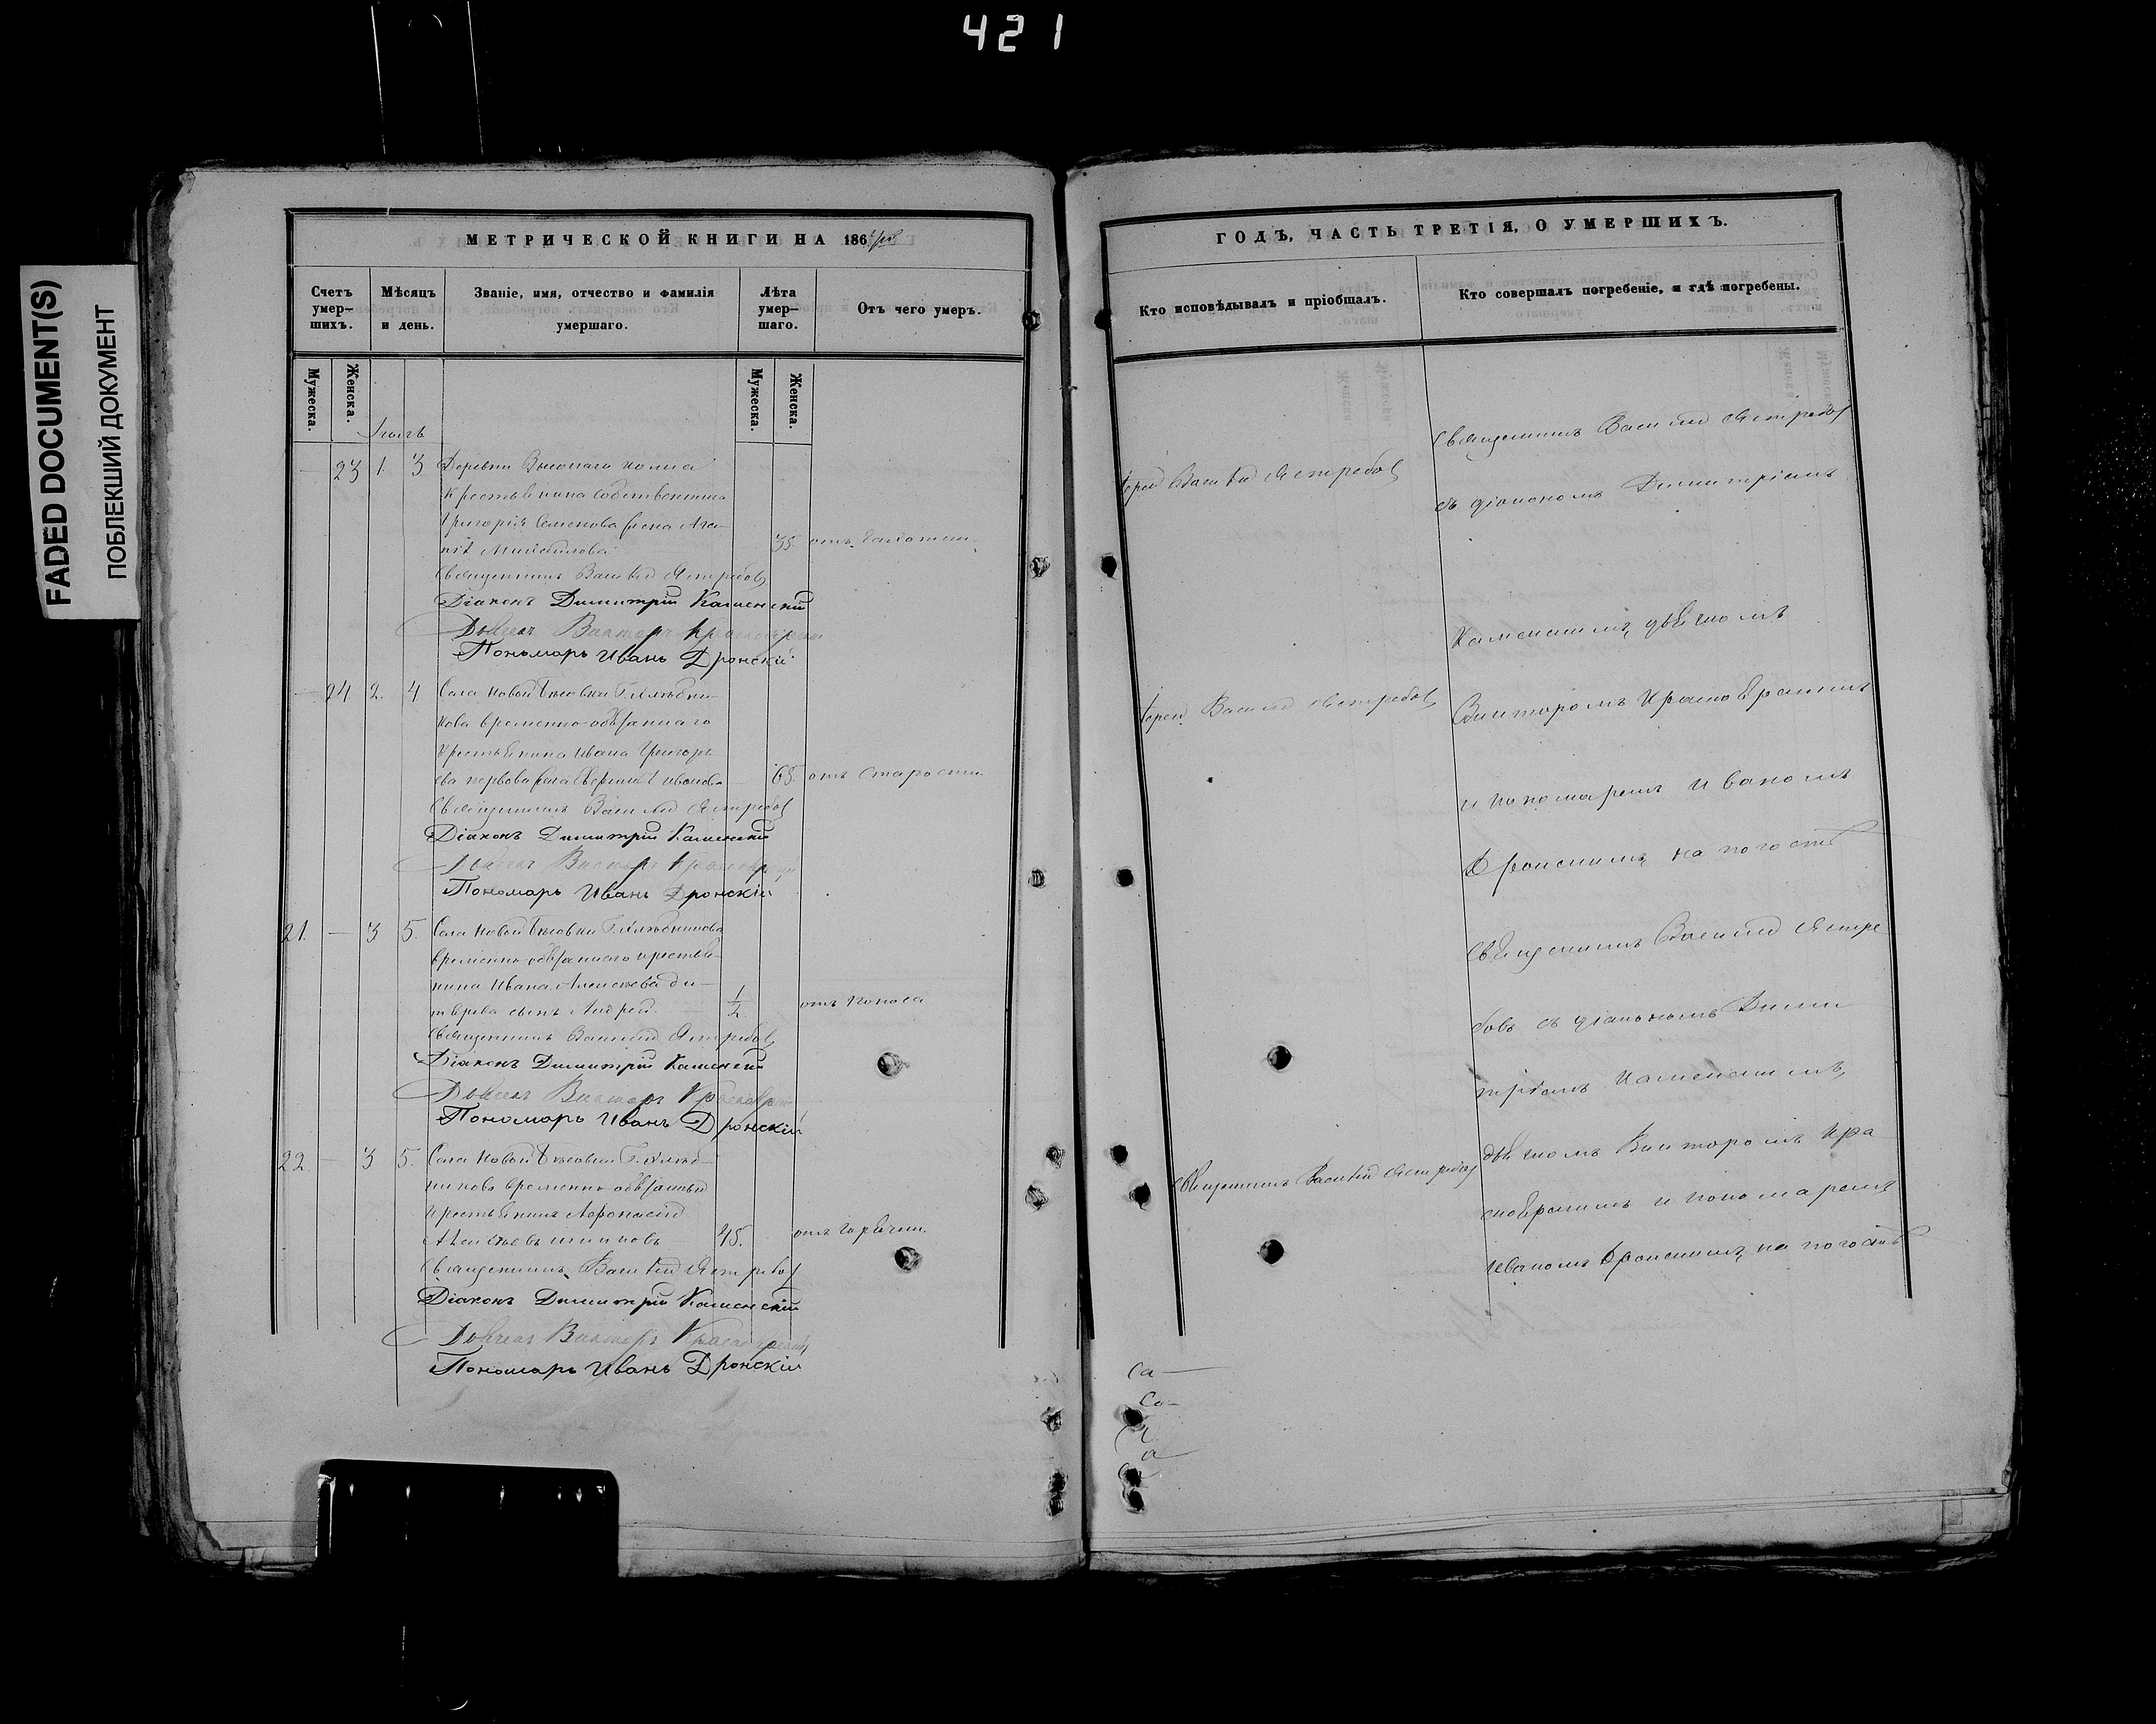 421
FADED DOCUMENT(S)
ПОБЛЕКШИЙ ДОКУМЕНТ
МЕТРИЧЕСКОЙ КНИГИ НА 186
Счетъ умер-шихъ.
Мѣсяцъ и день.
Званіе, имя, отчество и фамилія умершаго.
Лѣта умер-шаго.
Отъ чего умеръ.
Мужеска.
Женска.
Мужеска.
Женска.
23 1. 3 Деревни
Крестьянина собственника
Григорія Семенова жена Ага-
35 отъ
Священникъ Василій Ястребовъ
Діаконъ Димитрій Каменскій
Дьячекъ Викторъ
Пономарь Иванъ Дронскій
24 2. 4 Села Новой Г. Хлѣбни-
кова временно-обязаннаго
крестьянина Ивана Григорь-
ева жена Иванова 65. отъ старости.
Священникъ Василій Ястребовъ
Діаконъ Димитрій Каменскій
Дьячекъ Викторъ
Пономарь Иванъ Дронскій
21. — 3 5. Села Новой Г. Хлѣбникова
временно-обязаннаго крестья-
нина Ивана Алексѣева
сынъ Андрей. 1/2 отъ поноса
Священникъ Василій Ястребовъ
Діаконъ Димитрій Каменскій
Дьячекъ Викторъ
Пономарь Иванъ Дронскій
22. — 3 5. Села Новой Г. Хлѣб-
никова временно-обязанный
крестьянинъ Афонасій
45. отъ горячки.
Священникъ Василій Ястребовъ
Діаконъ Димитрій Каменскій
Дьячекъ Викторъ
Пономарь Иванъ Дронскій
ГОДЪ, ЧАСТЬ ТРЕТІЯ, О УМЕРШИХЪ.
Кто исповѣдывалъ и пріобщалъ.
Кто совершалъ погребеніе, и гдѣ погребены.
Іерей Василій Ястребовъ
Іерей Василій Ястребовъ
Священникъ Василій Ястребовъ
Священникъ Василій Ястребовъ
съ діакономъ Димитріемъ
Каменскимъ, дьячкомъ
Викторомъ
и пономаремъ Иваномъ
Дронскимъ на погостѣ
Священникъ Василій Ястре
бовъ съ діакономъ Дими
тріемъ Каменскимъ,
дьячкомъ Викторомъ Кра
и пономаремъ
Иваномъ Дронскимъ на погостѣ